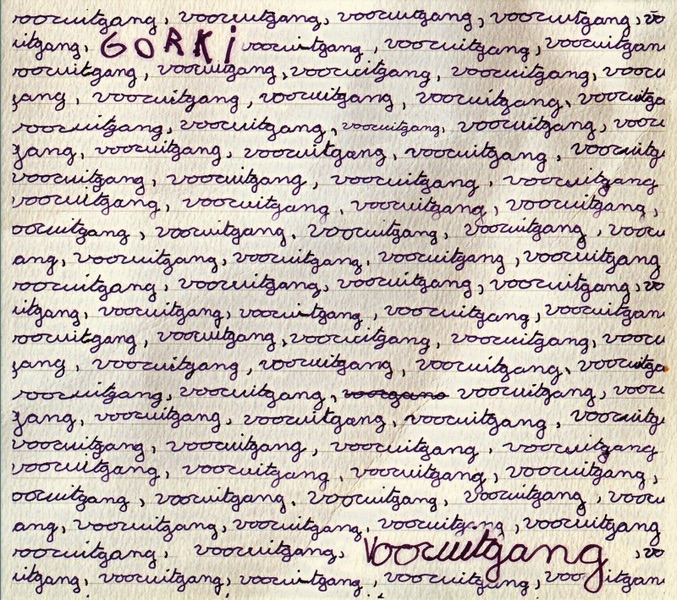 vooruitgang, vooruitgang, vooruitgang, vooruitgang, vo
uitgang, GORKi vooruitgang, vooruitgang, vooruitgan
vooruitgang, vooruitgang, vooruitgang, vooruitgang, vooru
gang, vooruitgang, vooruitgang, vooruitgang, vooruitga
vooruitgang, vooruitgang, vooruitgang, vooruitgang, vooru
gang, vooruitgang, vooruitgang, vooruitgang, vooruitg
vooruitgang, vooruitgang, vooruitgang, vooruitgang
vooruitgang, vooruitgang, vooruitgang, vooruitgang,
ooruitgang, vooruitgang, vooruitgang, vooruitgang, vooru
ang, vooruitgang, vooruitgang, vooruitgang, vooruitgang
vooruitgang, vooruitgang, vooruitgang, vooruitgang, vo
uitgang, vooruitgang, vooruitgang, vooruitgang, vooruitgan
vooruitgang, vooruitgang, vooruitgang, vooruitgang, vooru
gang, vooruitgang, vooruitgang, vooruitgang, vooruitga
vooruitgang, vooruitgang, vooruitgang, vooru
gang, vooruitgang, vooruitgang, vooruitgang, vooruitg
vooruitgang, vooruitgang, vooruitgang, vooruitgang
vooruitgang, vooruitgang, vooruitgang, vooruitgang,
ooruitgang, vooruitgang, vooruitgang, vooruitgang, vooru
ang, vooruitgang, vooruitgang, vooruitgang, vooruitgang
vooruitgang, vooruitgang, Vooruitgang, vo
uitgang, vooruitgang, vooruitgang, vooruitgang, vooruitgan